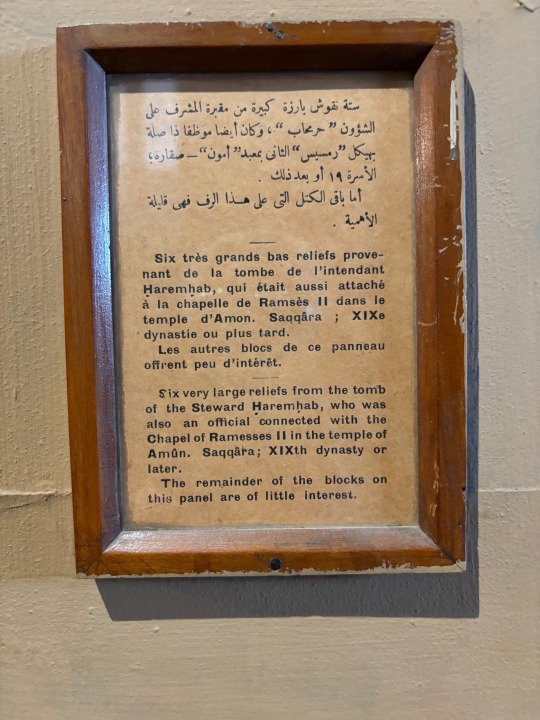 ستة نقوش بارزة كبيرة من مقبرة المشرف على
الشؤون "حرمحاب"، وكان أيضا موظفا ذا صلة
بهيكل "رمسيس" الثانى بمعبد "أمون" ــ صقارة؛
الأسرة ١٩ أو بعد ذلك .
أما باقى الكتل التى على هـذا الرف فهى قليلة
الأهمية .
Six très grands bas reliefs prove-
nant de la tombe de l'intendant
Ḥaremḥab, qui était aussi attaché
à la chapelle de Ramsès II dans le
temple d'Amon. Saqqâra ; XIXe
dynastie ou plus tard.
Les autres blocs de ce panneau
offrent peu d'intérêt.
Six very large reliefs from the tomb
of the Steward Ḥaremḥab, who was
also an official connected with the
Chapel of Ramesses II in the temple of
Amûn. Saqqâra; XIXth dynasty or
later.
The remainder of the blocks on
this panel are of little interest.